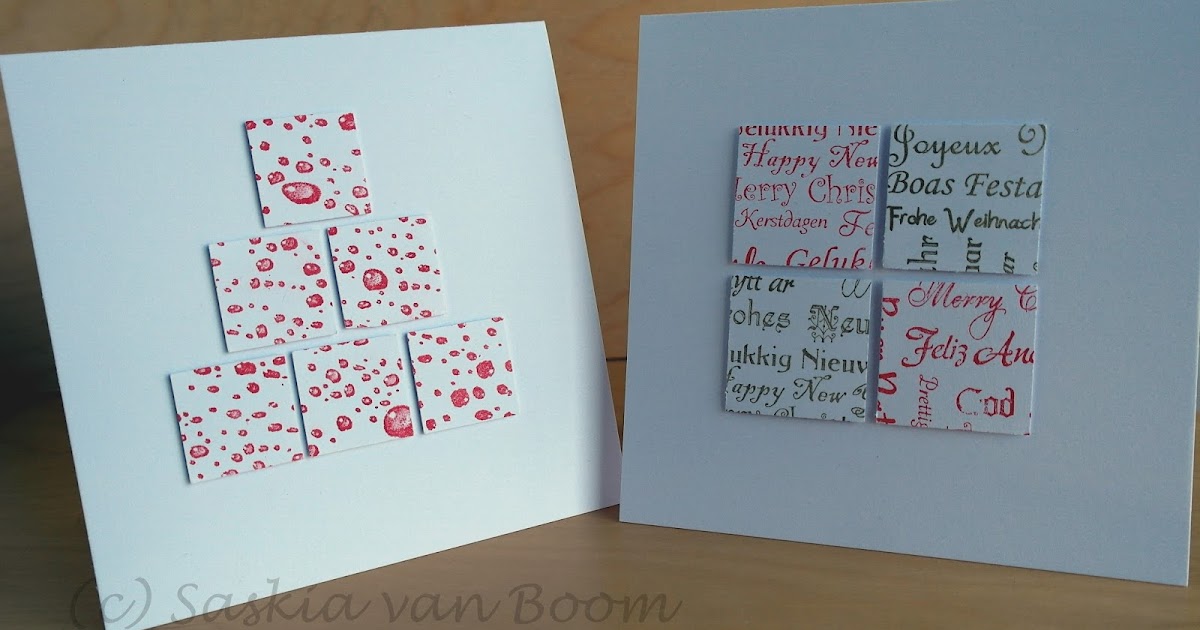 elukkig Nie
Happy New
Merry Chris
Kerstdagen Fe
Geluk
Joyeux
Boas Festa
Frohe Weihnach
ytt ar
ohes Neu
ukkig Nieuw
Happy New
Merry C
Feliz
God
(c) Saskia van Boom